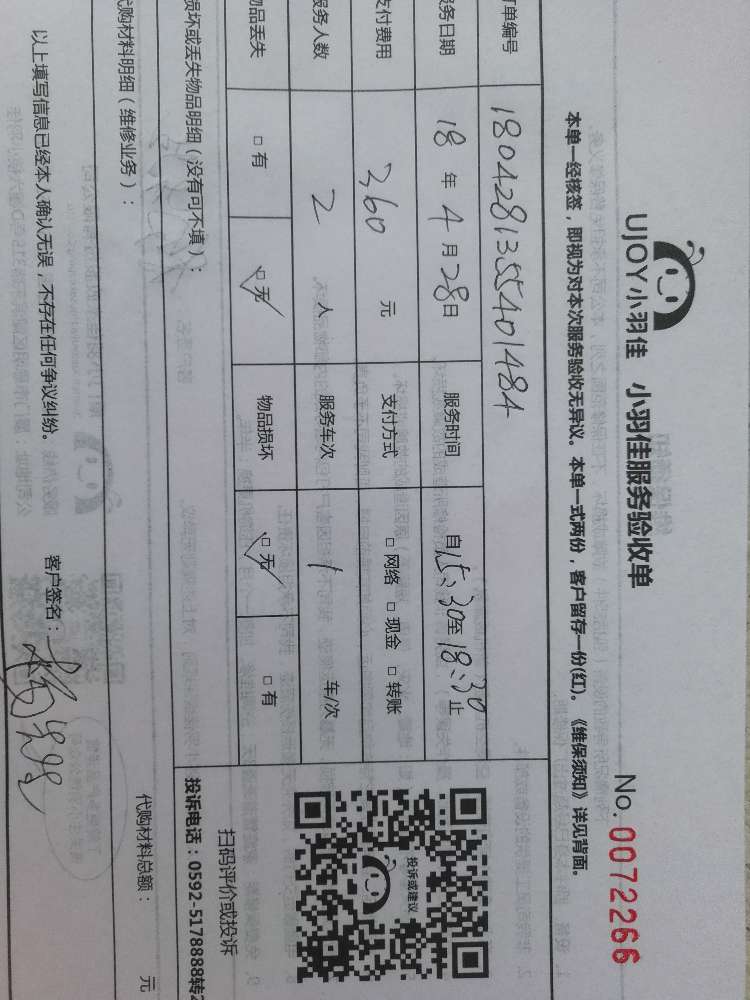 UJOY小羽佳 小羽佳服务验收单
No.0072266
本单一经核签，即视为对本次服务验收无异议。本单一式两份，客户留存一份(红)。《维保须知》详见背面。
订单编号 1804281355401484
服务日期 18年4月28日 服务时间 自15:30至18:30止
支付费用 360元 支付方式 □网络 □现金 □转账
服务人数 2人 服务车次 1车/次
物品丢失 □有 □无 物品损坏 □无 □有
投诉或建议
扫码评价或投诉
投诉电话：0592-5178888转2
损坏或丢失物品明细（没有可不填）：
代购材料明细（维修业务）：
代购材料总额： 元
以上填写信息已经本人确认无误，不存在任何争议纠纷。 客户签名：